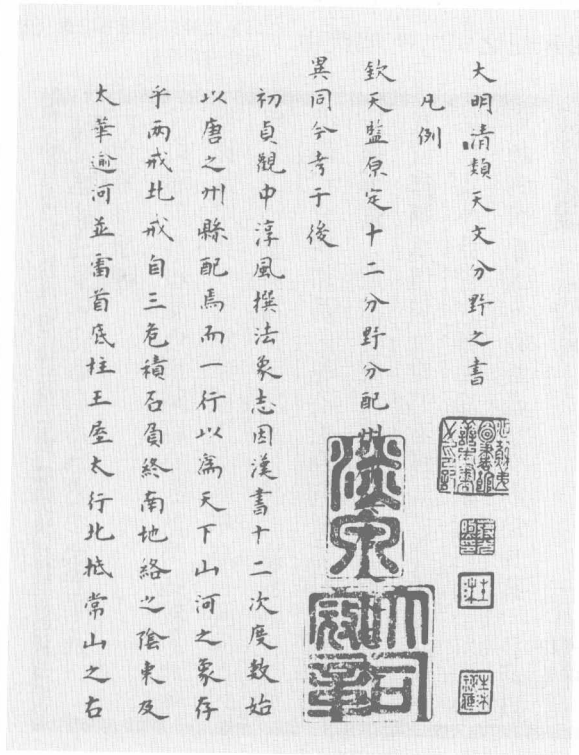 大明清類天文分野之書
凡例
欽天監原定十二分野分配州
異同今考于後
初貞觀中淳風撰法象志因漢書十二次度數始
以唐之州縣配焉而一行以爲天下山河之象存
乎兩戒北戒自三危積石負終南地絡之陰東及
太華逾河並雷首底柱王屋太行北抵常山之右